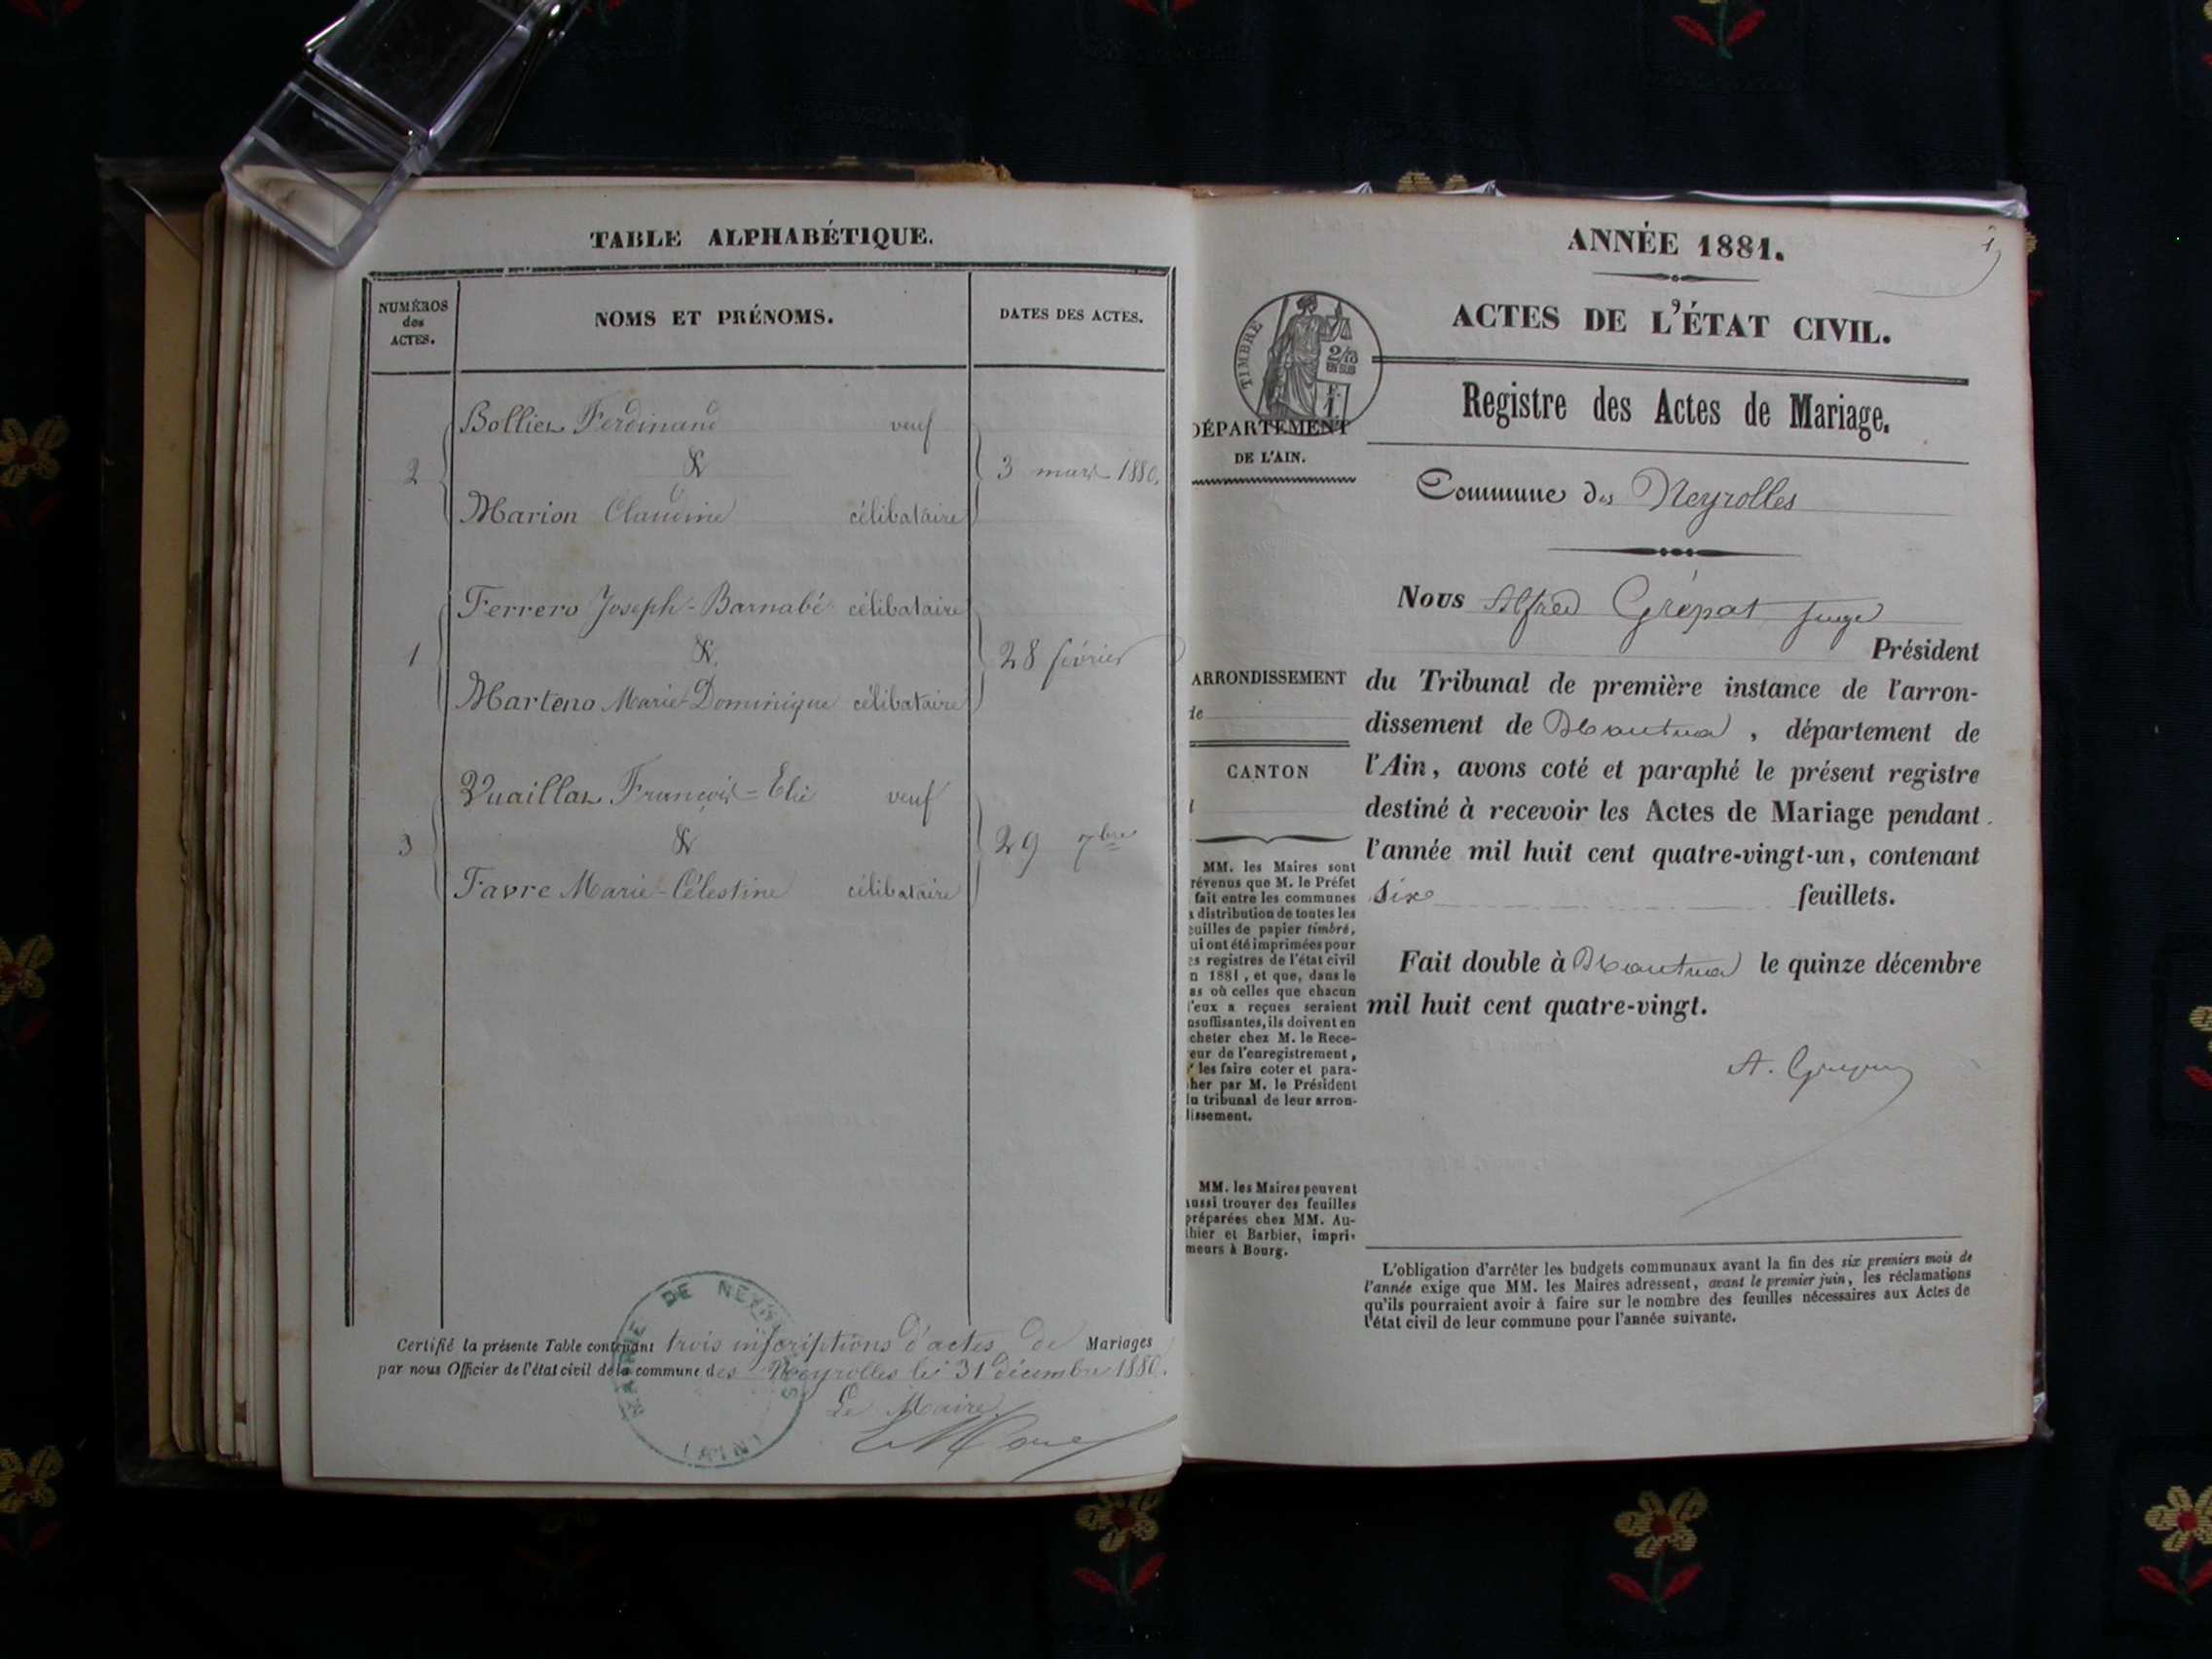 TABLE ALPHABÉTIQUE.
NUMÉROS
des
ACTES.
NOMS ET PRÉNOMS.
DATES DES ACTES.
Bollier Ferdinand veuf
2 & 3 mars 1880.
Marion Claudine célibataire
Ferrero Joseph-Barnabé célibataire
1 & 28 février
Marteno Marie-Dominique célibataire
Vuaillat François-Elie veuf
3 & 29 7bre
Favre Marie-Célestine célibataire
Certifié la présente Table contenant trois inscriptions d'actes de Mariages
par nous Officier de l'état civil de la commune des Neyrolles le 31 décembre 1880.
Le Maire
MAIRIE DE NEYROLLES (AIN)
ANNÉE 1881.
1
ACTES DE L'ÉTAT CIVIL.
TIMBRE
2/10
EN SUS
Registre des Actes de Mariage.
DÉPARTEMENT
DE L'AIN.
Commune des Neyrolles
Nous Alfred Grépat, juge
Président
ARRONDISSEMENT
de
CANTON
du Tribunal de première instance de l'arron-
dissement de Nantua, département de
l'Ain, avons coté et paraphé le présent registre
destiné à recevoir les Actes de Mariage pendant
l'année mil huit cent quatre-vingt-un, contenant
six feuillets.
Fait double à Nantua le quinze décembre
mil huit cent quatre-vingt.
MM. les Maires sont
révenus que M. le Préfet
fait entre les communes
a distribution de toutes les
euilles de papier timbré,
ui ont été imprimées pour
es registres de l'état civil
n 1881, et que, dans le
as où celles que chacun
d'eux a reçues seraient
nsuffisantes, ils doivent en
cheter chez M. le Rece-
eur de l'enregistrement,
les faire coter et para-
her par M. le Président
du tribunal de leur arron-
dissement.
MM. les Maires peuvent
aussi trouver des feuilles
préparées chez MM. Au-
thier et Barbier, impri-
meurs à Bourg.
L'obligation d'arrêter les budgets communaux avant la fin des six premiers mois de
l'année exige que MM. les Maires adressent, avant le premier juin, les réclamations
qu'ils pourraient avoir à faire sur le nombre des feuilles nécessaires aux Actes de
l'état civil de leur commune pour l'année suivante.